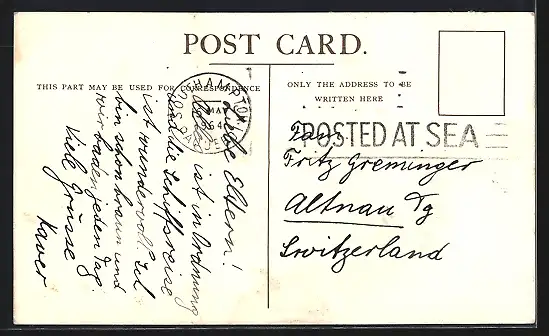 POST CARD.
THIS PART MAY BE USED FOR CORRESPONDENCE
ONLY THE ADDRESS TO BE
WRITTEN HERE
HAMPTON
MAY
POSTED AT SEA
Liebe Eltern!
ist in Ordnung
und die Schiffsreise
ist wundervoll.
bin schon braun und
wir baden jeden Tag.
Viele Grüsse
Xaver
Fam.
Fritz Greminger
Altnau Tg
Switzerland